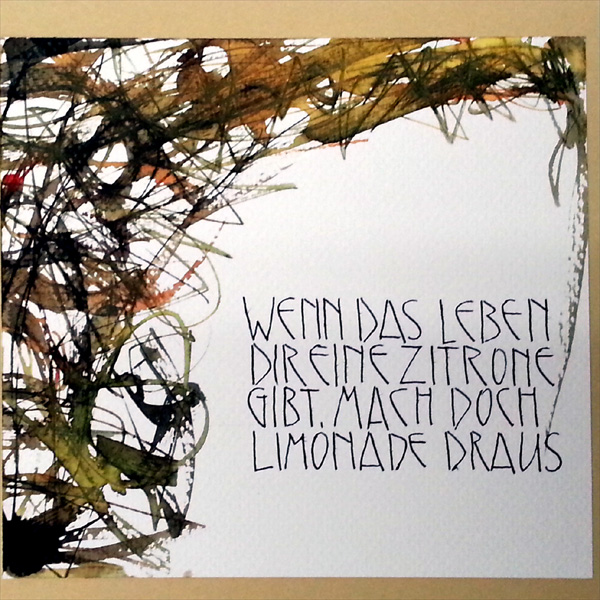 WENN DAS LEBEN
DIR EINE ZITRONE
GIBT, MACH DOCH
LIMONADE DRAUS